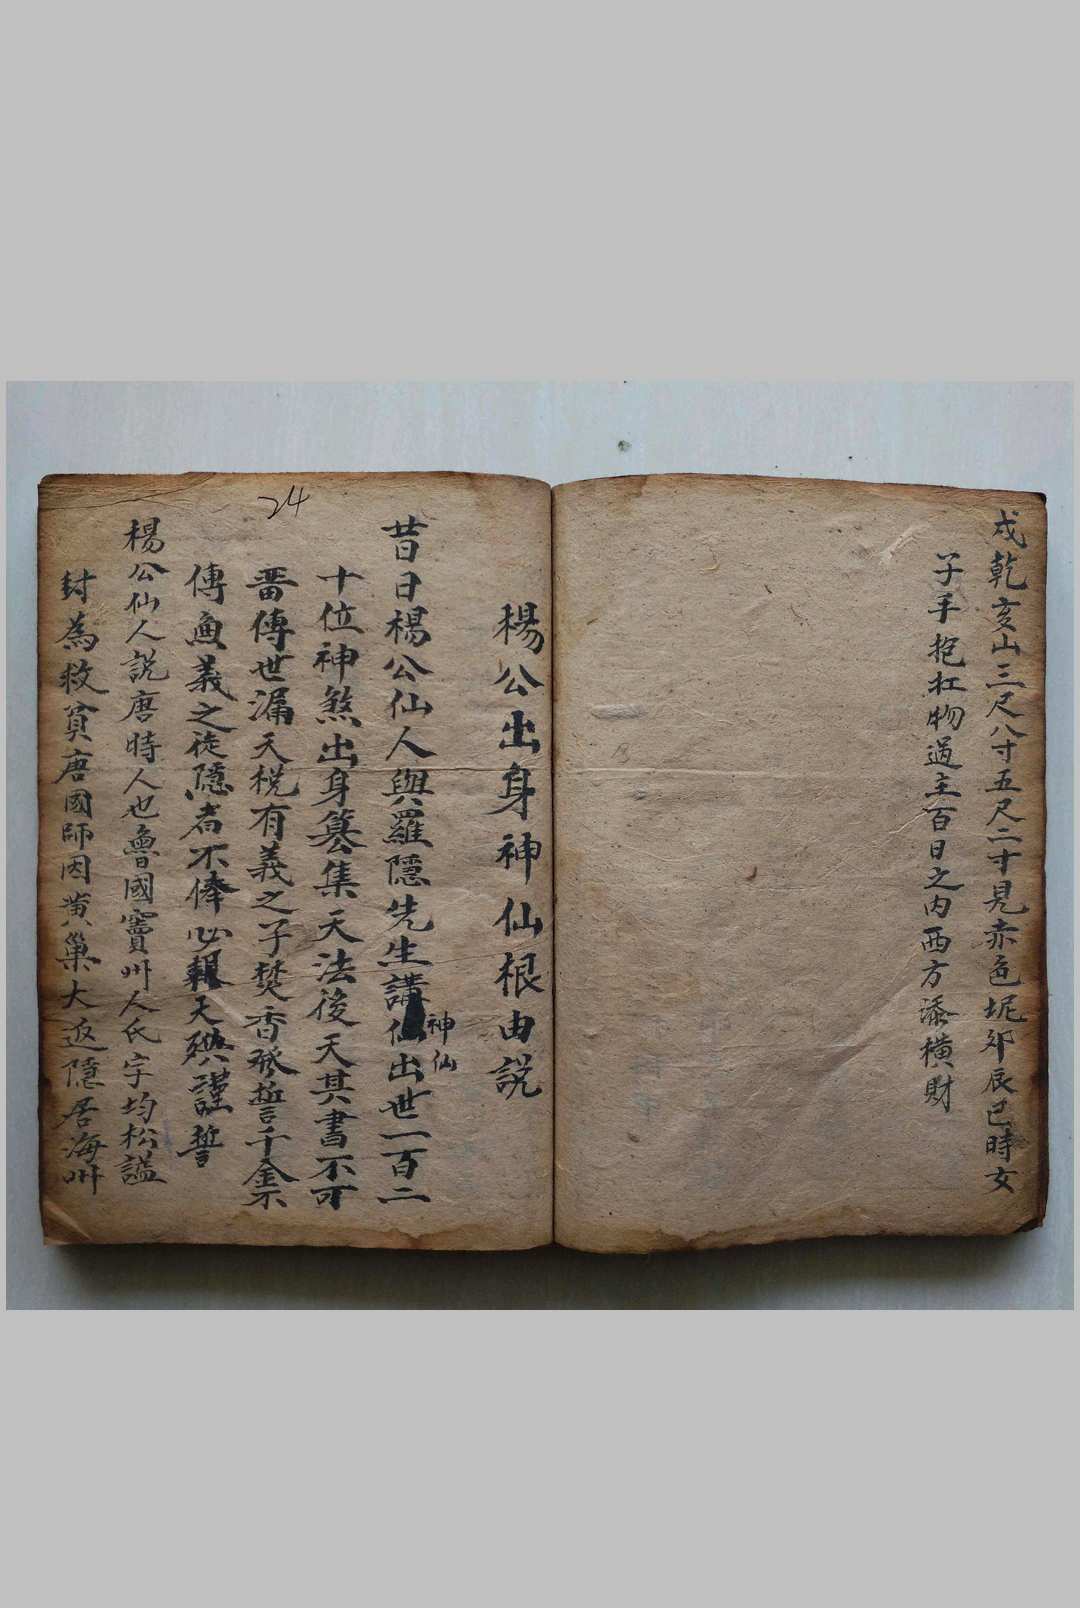 戌乾亥山三尺八寸五尺二寸見赤色坭卯辰巳時女
子手抱扛物過主百日之内西方添橫財
楊公出身神仙根由説
昔日楊公仙人與羅隱先生講仙出世一百二
神仙
十位神煞出身篡集天法後天其書不可
畨傳世漏天棁有義之子焚香發誓千金不
傳魚義之徒隱者不俸必報天殃謹誓
楊公仙人說唐時人也魯國竇州人氏字均松謚
封為救貧唐國師因黄巢大返隱居海州
24